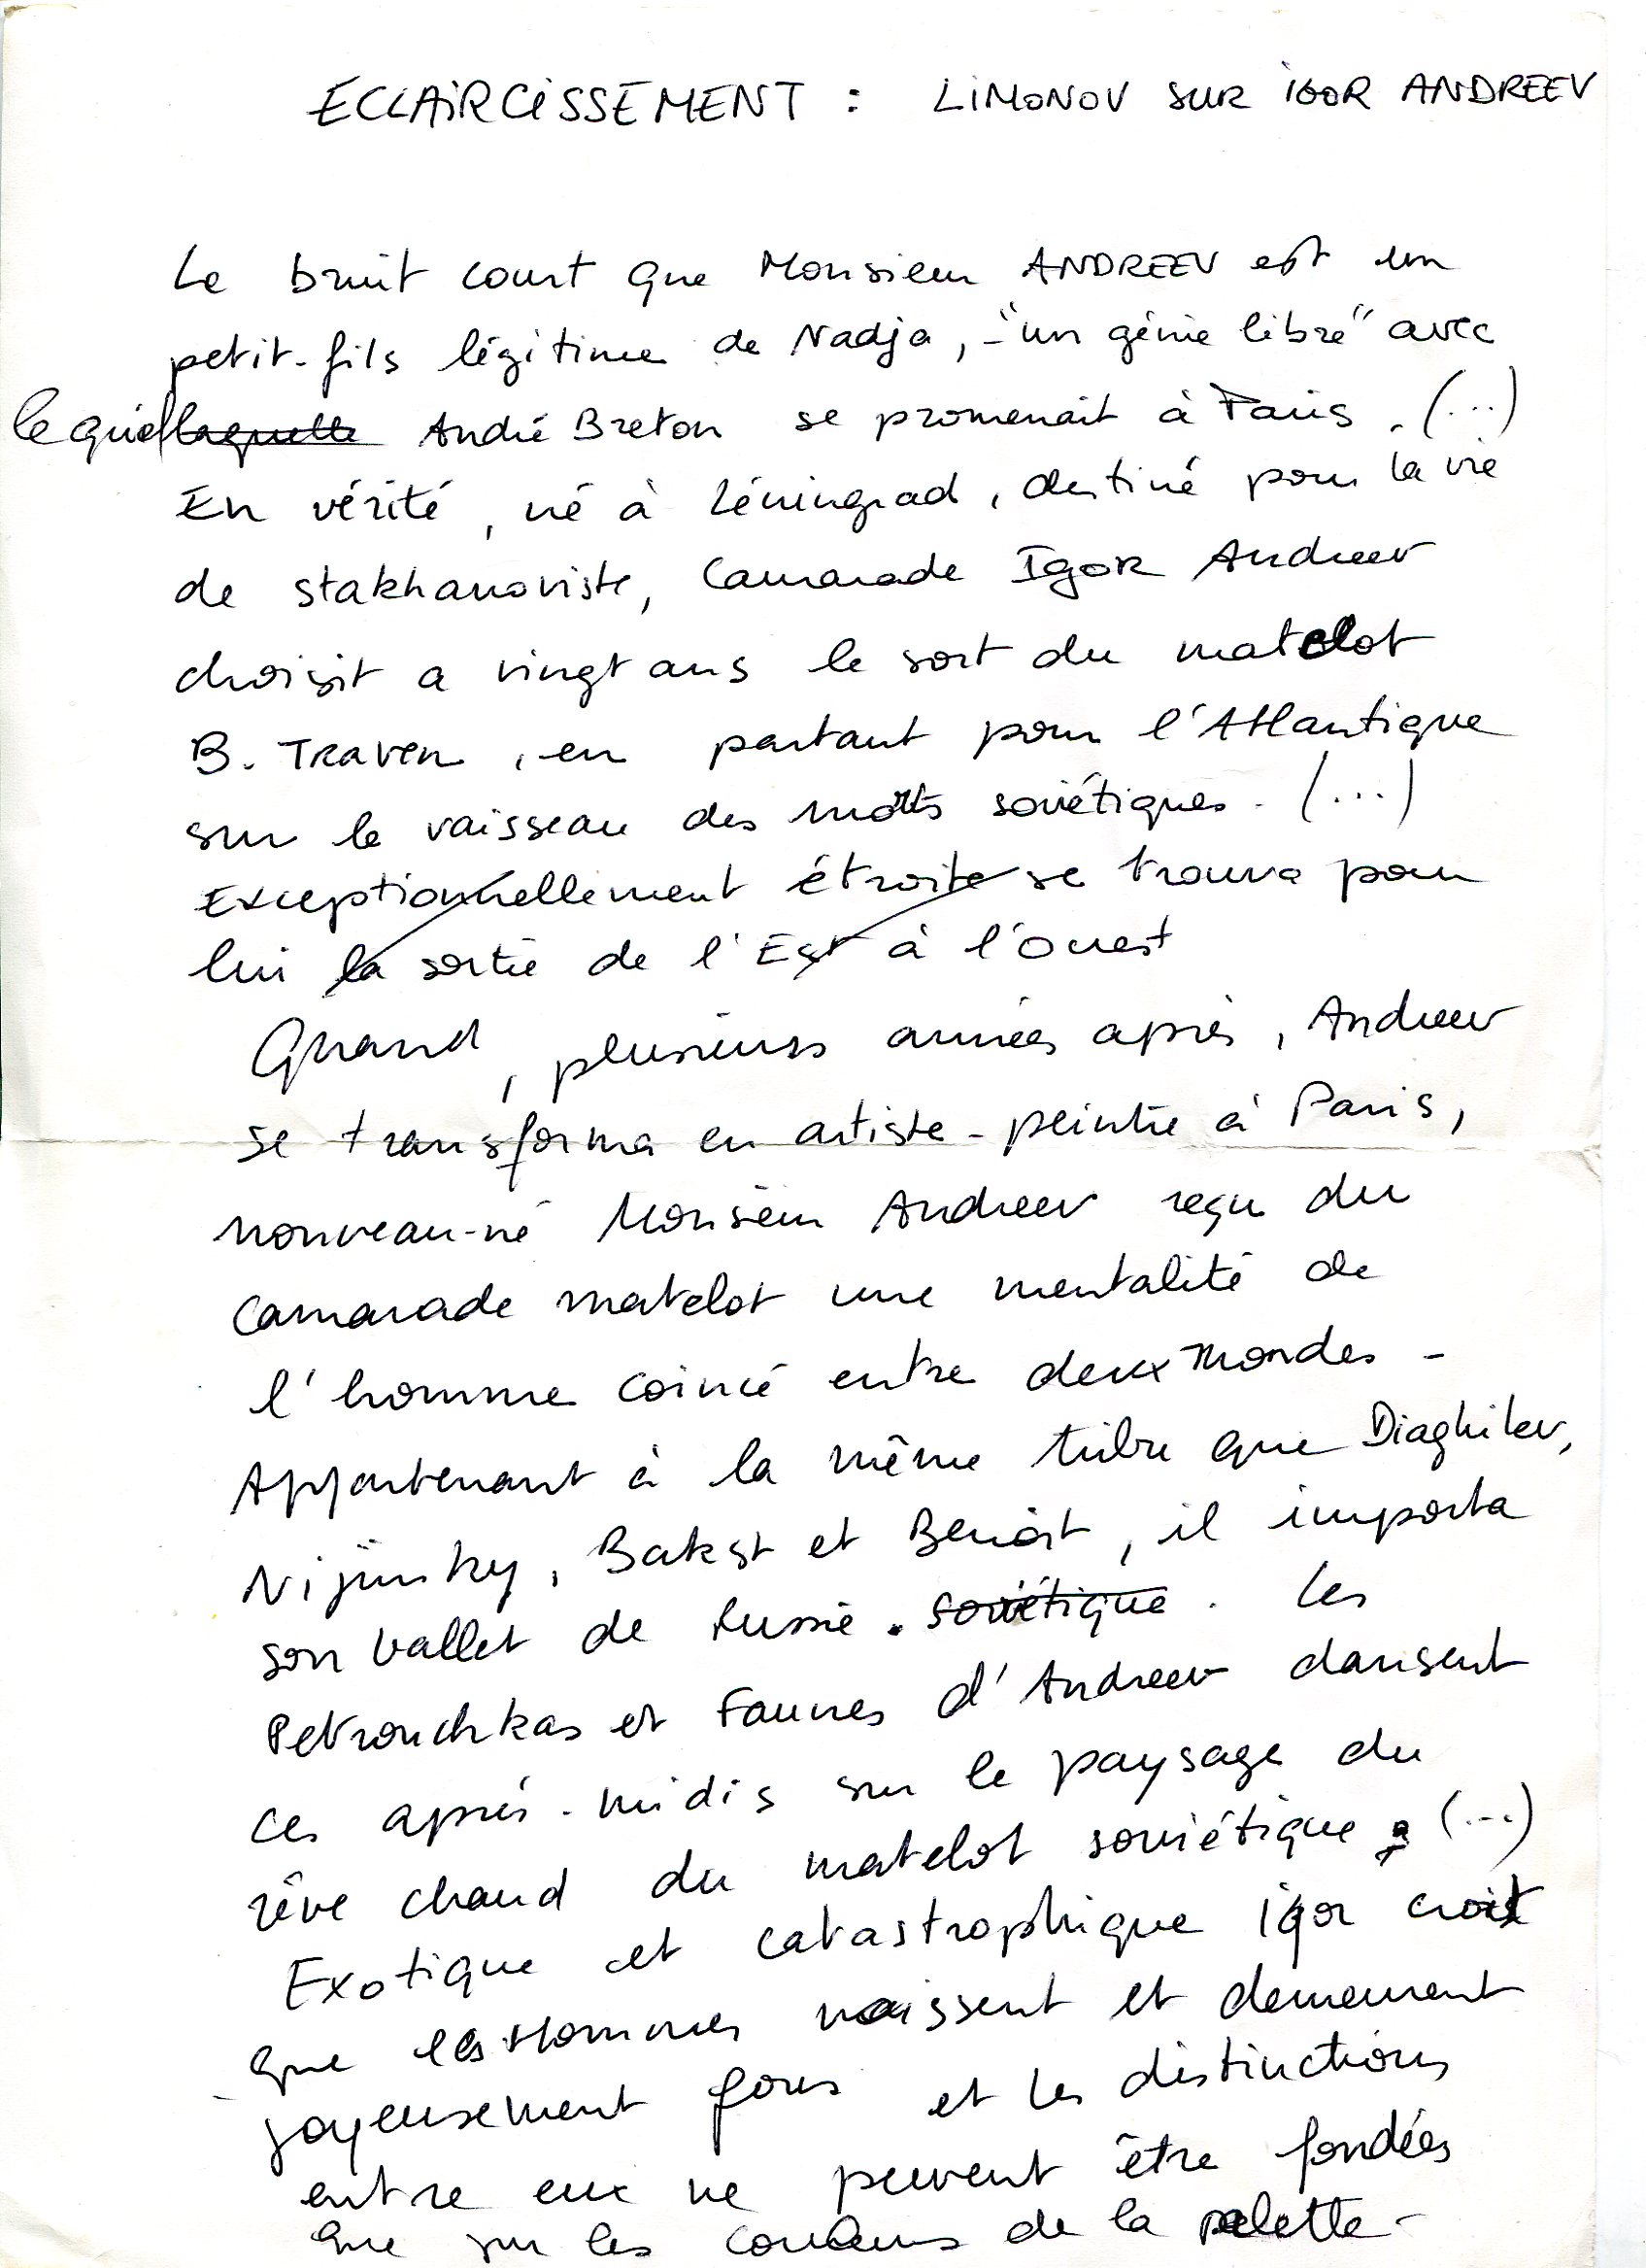 ECLAIRCISSEMENT : LIMONOV SUR IGOR ANDREEV
Le bruit court que Monsieur ANDREEV est un
petit-fils légitime de Nadja, - "un génie libre" avec
lequel laquelle André Breton se promenait à Paris. (...)
En vérité, né à Léningrad, destiné pour la vie
de stakhanoviste, Camarade Igor Andreev
choisit a vingt ans le sort du matelot
B. Traven, en partant pour l'Atlantique
sur le vaisseau des morts soviétiques. (...)
Exceptionnellement étroite se trouva pour
lui la sortie de l'Est à l'Ouest
Quand, plusieurs années après, Andreev
se transforma en artiste-peintre à Paris,
nouveau-né Monsieur Andreev reçu du
Camarade matelot une mentalité de
l'homme coincé entre deux Mondes -
Appartenant à la même tribu que Diaghilev,
Nijinsky, Bakst et Benoit, il importa
son ballet de Russie. soviétique. Les
Petrouchkas et Faunes d'Andreev dansent
ces après-midis sur le paysage du
rêve chaud du matelot soviétique, (...)
Exotique et catastrophique Igor croit
que les Hommes naissent et demeurent
joyeusement fous et les distinctions
entre eux ne peuvent être fondées
que sur les couleurs de la palette -